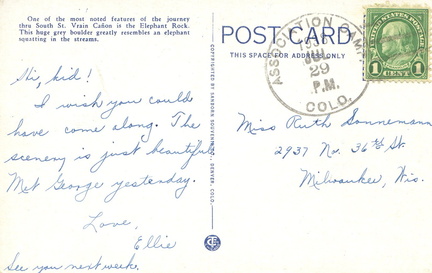 One of the most noted features of the journey
thru South St. Vrain Cañon is the Elephant Rock.
This huge grey boulder greatly resembles an elephant
squatting in the streams.
Hi, kid!
I wish you could
have come along. The
scenery is just beautiful.
Met George yesterday.
Love,
Ellie
See you next week.
POST CARD
THIS SPACE FOR ADDRESS ONLY
ASSOCIATION CAMP
JUL
29
P.M.
COLO.
UNITED STATES POSTAGE
1 CENT 1
Miss Ruth Sonnemann
2937 No. 36th St.
Milwaukee, Wis.